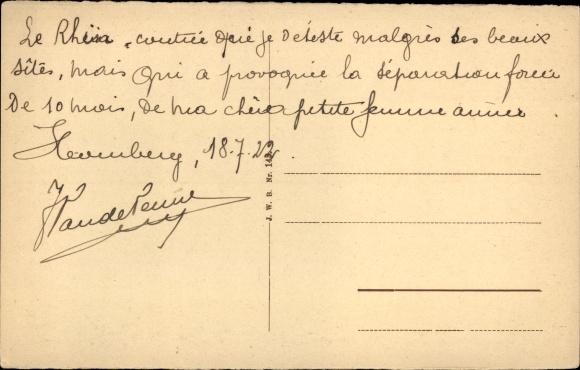 Le Rhin, contrée que je déteste malgrès ses beaux
sites, mais qui a provoquée la séparation forcée
de 10 mois, de ma chère petite femme aimée
Homberg, 18.7.22.
J. W. B. Nr. 148